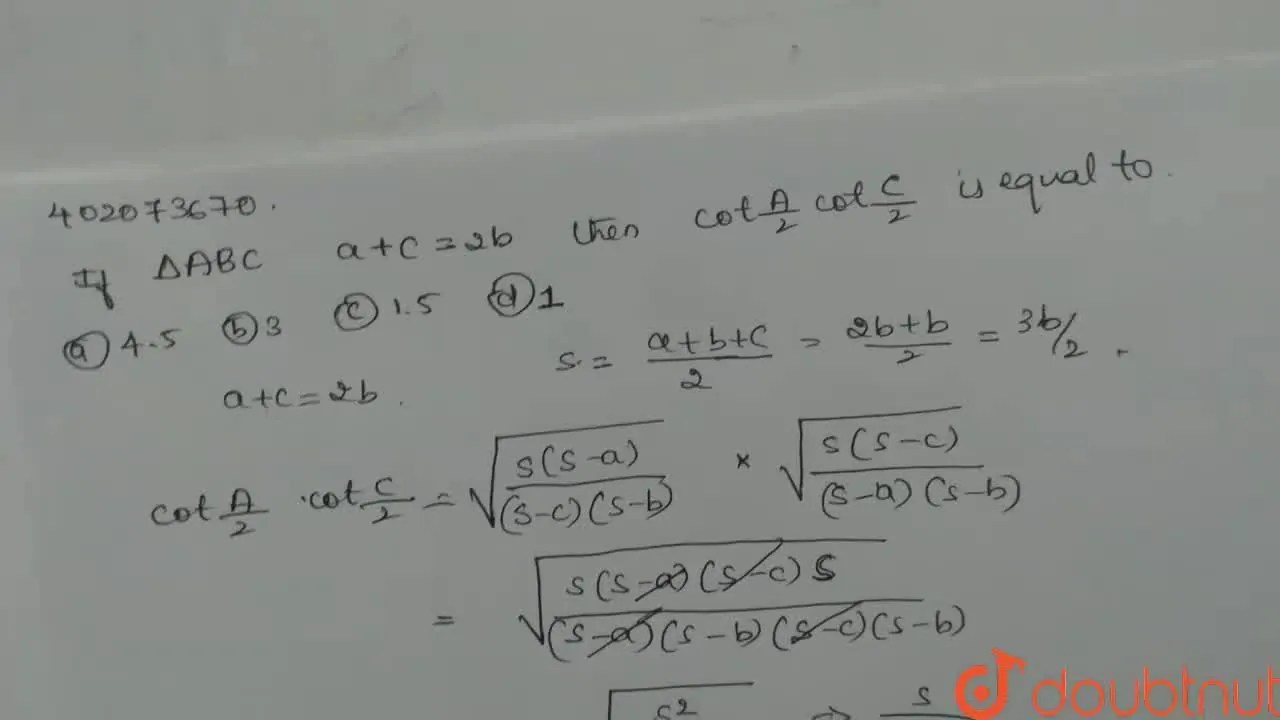 402073670.
If ΔABC a+c=2b then cot A/2 cot C/2 is equal to.
ⓐ 4.5 ⓑ 3 ⓒ 1.5 ⓓ 1
a+c=2b. s.= (a+b+c)/2 = (2b+b)/2 = 3b/2.
cot A/2 .cot C/2 = √(s(s-a)/(s-c)(s-b)) × √(s(s-c)/(s-a)(s-b))
= √(s(s-a)(s-c)s/(s-a)(s-b)(s-c)(s-b))
√s² ⇒ s
doubtnut